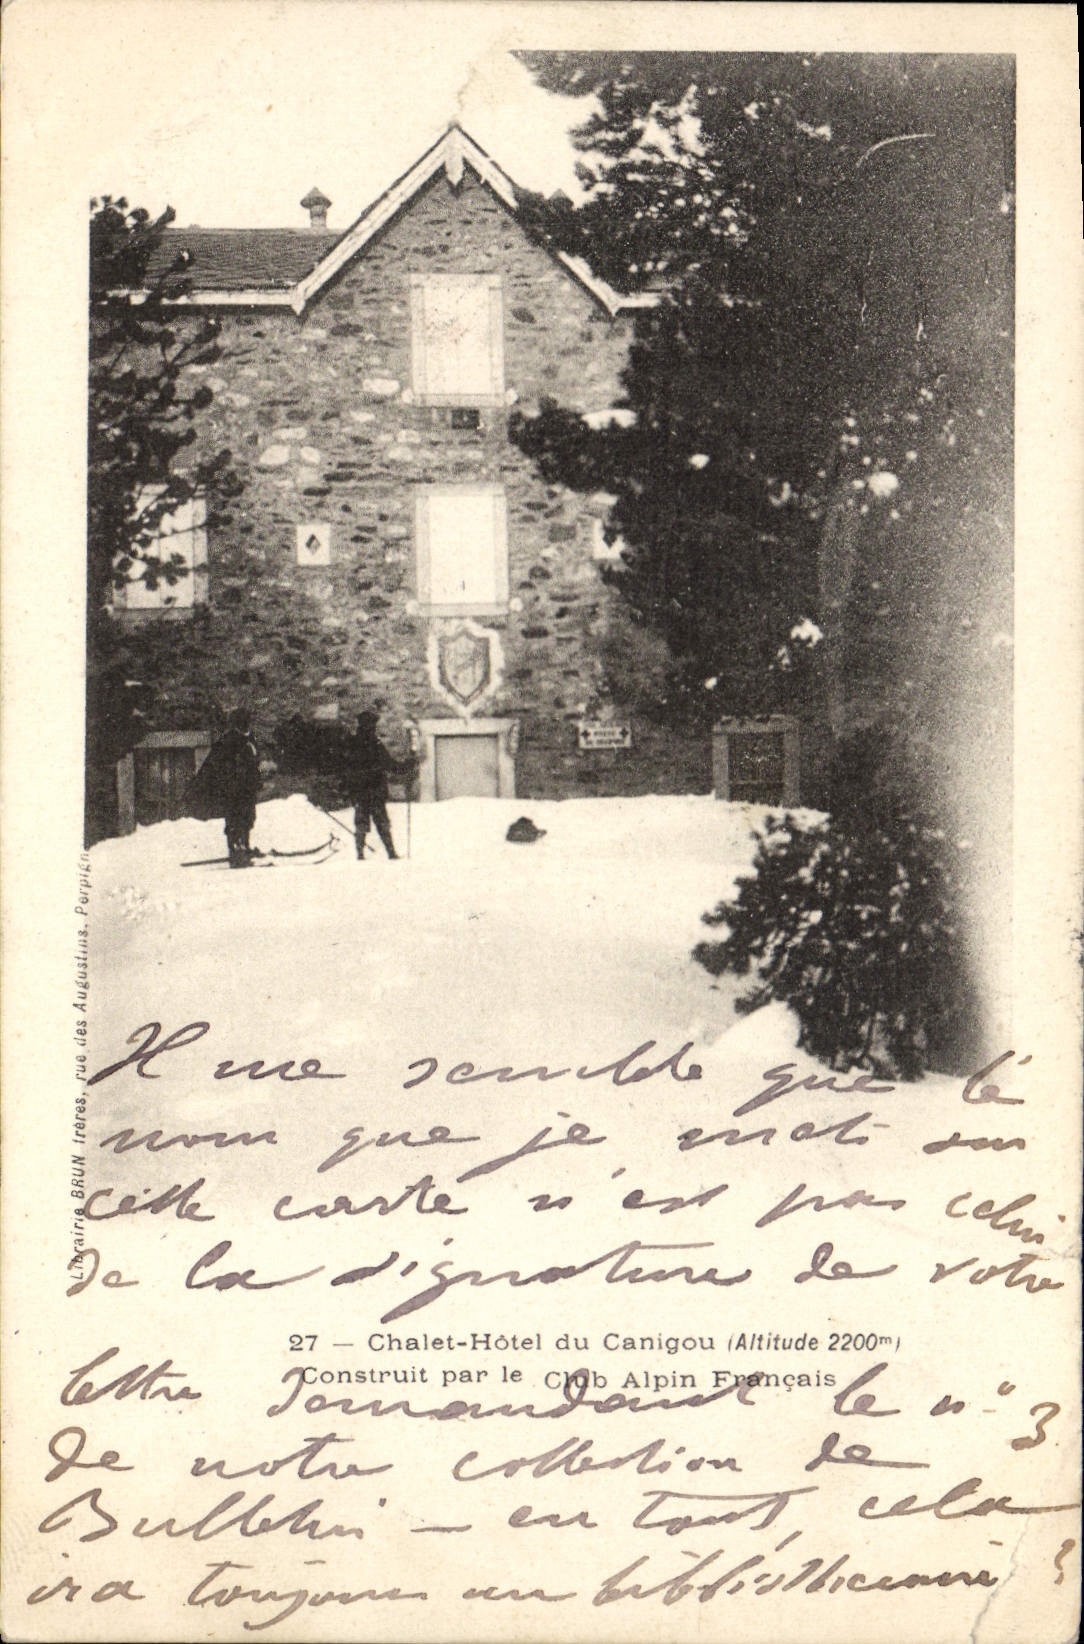 POSTE
DE SECOURS
Librairie BRUN frères, rue des Augustins, Perpign
Il me semble que le
nom que je mets sur
cette carte n'est pas celui
de la signature de votre
27 — Chalet-Hôtel du Canigou (Altitude 2200m)
Construit par le Club Alpin Français
lettre demandant le n° 3
de notre collection de
Bulletin — en tout, cela
ira toujours au bibliothécaire ?